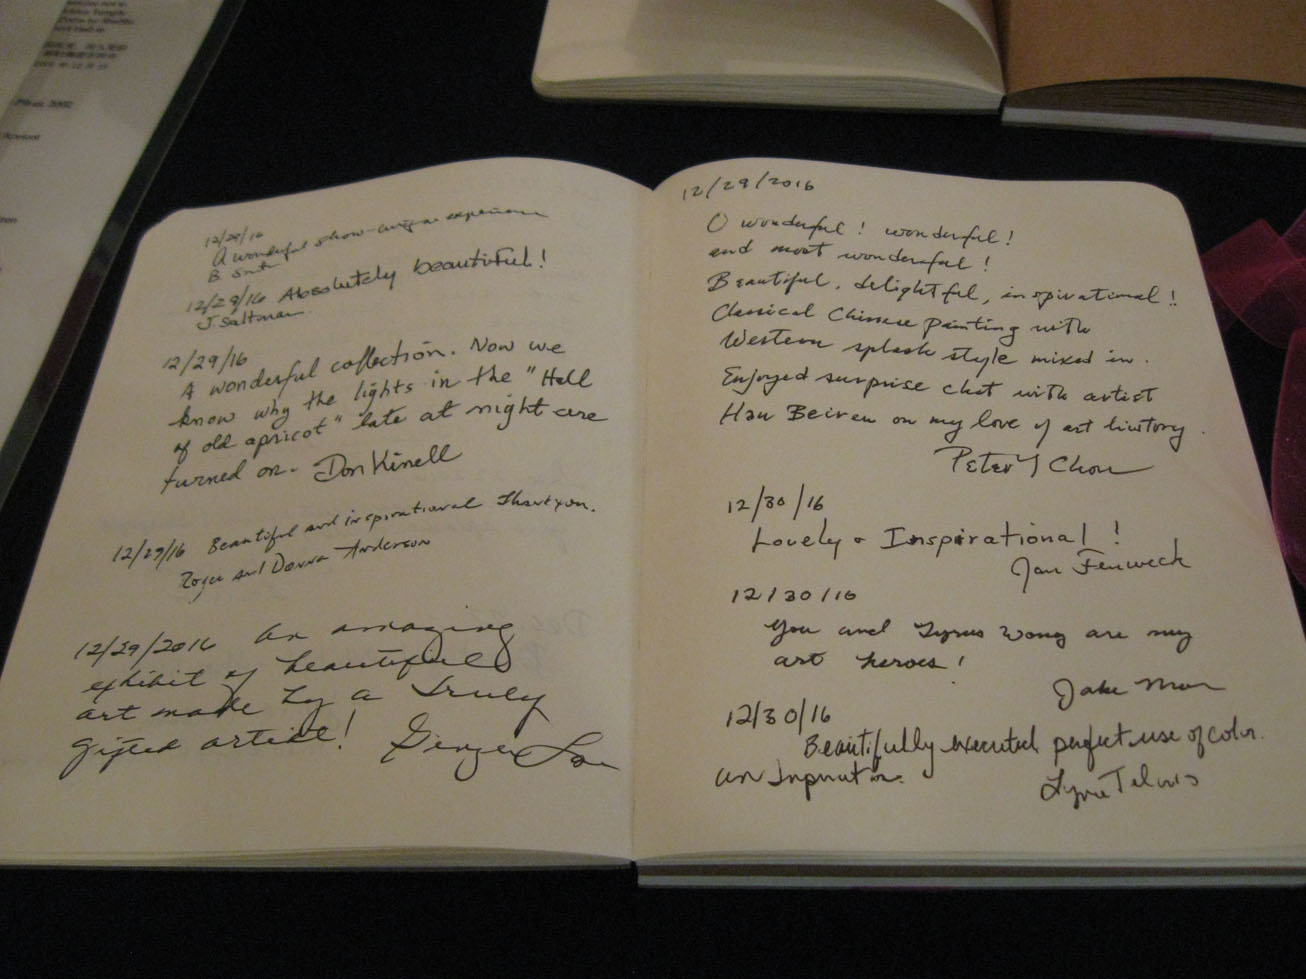 12/28/16
A wonderful show - unique experience
B
12/29/16 Absolutely beautiful!
J. Saltman
12/29/16
A wonderful collection. Now we
know why the lights in the "Hall
of old apricot" late at night are
turned on. Don Kinell
12/29/16 Beautiful and inspirational Thank you.
Roger and Donna Anderson
12/29/2016 An amazing
exhibit of beautiful
art made by a truly
gifted artist! Ginger
12/29/2016
O wonderful! wonderful!
and most wonderful!
Beautiful, delightful, inspirational!!
Classical Chinese painting with
Western splash style mixed in.
Enjoyed surprise chat with artist
Hau Beiren on my love of art history.
Peter Y Chou
12/30/16
Lovely & Inspirational!
Jan Fenweck
12/30/16
You and Tyrus Wong are my
art heroes!
Jake
12/30/16
Beautifully executed perfect use of color.
an Inspiration.